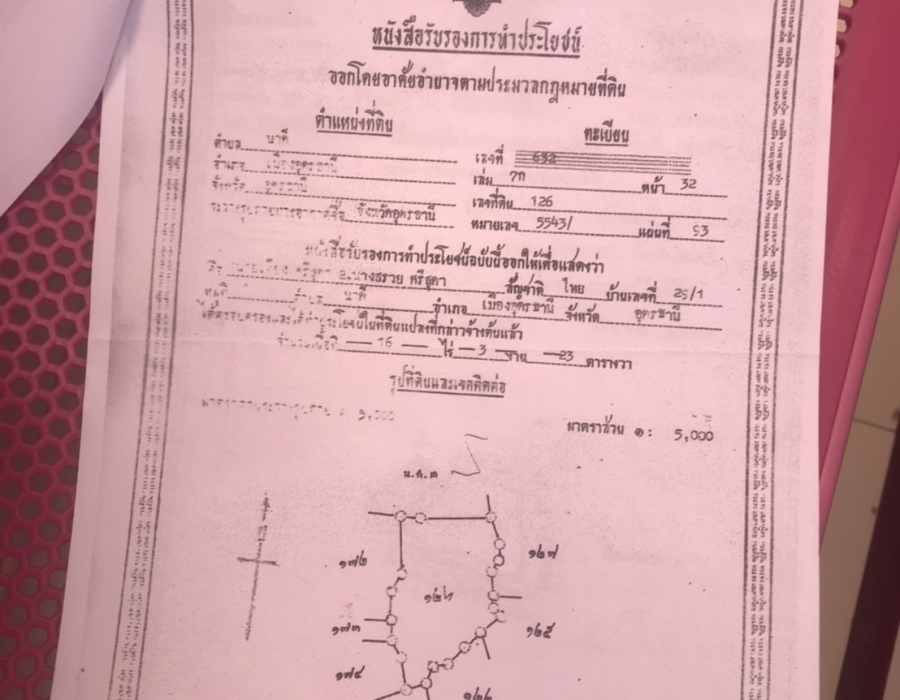 หนังสือรับรองการทำประโยชน์
ออกโดยอาศัยอำนาจตามประมวลกฎหมายที่ดิน
ตำแหน่งที่ดิน
ทะเบียน
ตำบล นาดี
เลขที่ 632
อำเภอ เมืองอุดรธานี
เล่ม 7ก หน้า 32
จังหวัด อุดรธานี
เลขที่ดิน 126
ระวางรูปถ่ายทางอากาศชื่อ จังหวัดอุดรธานี
หมายเลข 5543/ แผ่นที่ 93
หนังสือรับรองการทำประโยชน์ฉบับนี้ออกให้เพื่อแสดงว่า
นางสรวย ศรีชูดา สัญชาติ ไทย บ้านเลขที่ 25/1
หมู่ที่ ตำบล นาดี อำเภอ เมืองอุดรธานี จังหวัด อุดรธานี
ได้ครอบครองและได้ทำประโยชน์ในที่ดินแปลงที่กล่าวข้างต้นแล้ว
จำนวนเนื้อที่ 16 ไร่ 3 งาน 23 ตารางวา
รูปที่ดินและเขตติดต่อ
5,000
มาตราส่วน ๑: 5,000
น.ส.๓
๑๗๒
๑๖๗
๑๒๖
๑๗๓
๑๒๕
๑๗๔